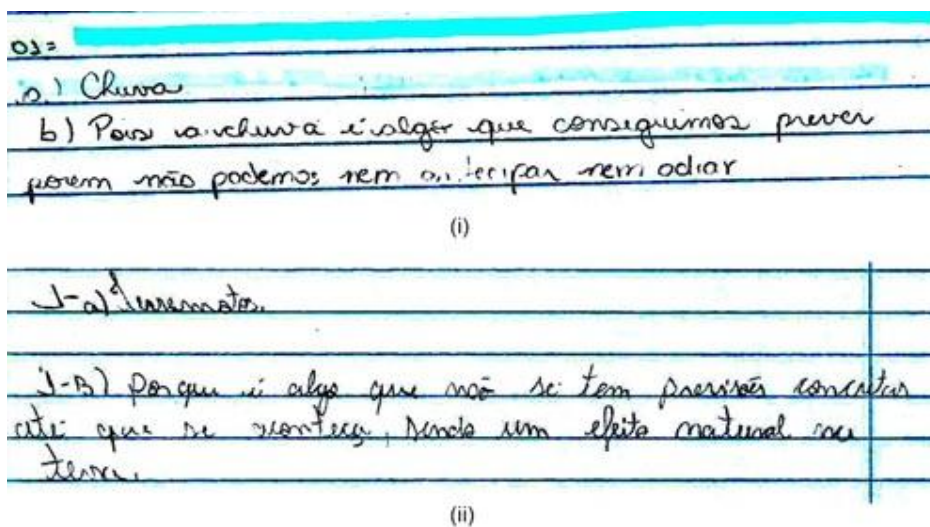 01=
a) Chuva
b) Pois a chuva é algo que conseguimos prever
porem não podemos nem antecipar nem adiar
(i)
1-a) Terremotos.
1-B) Porque é algo que não se tem previsões concretas
até que se aconteça, sendo um efeito natural na
terra.
(ii)